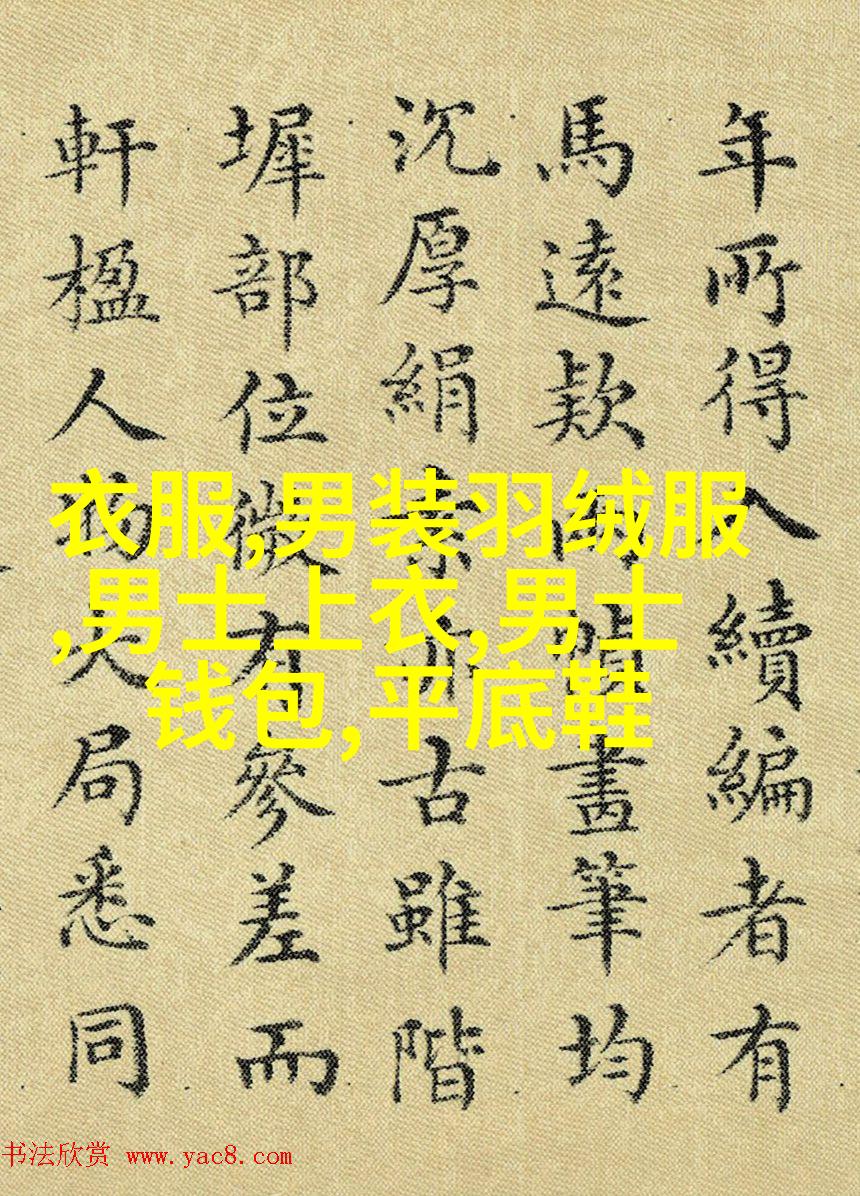 年所得入續編者有
馬遠款兩幀畫筆均
沉厚絹素亦古雖階
墀部位微有參差而
軒楹人物大局悉同
衣服,男装羽绒服
,男士上衣,男士
钱包,平底鞋
书法欣赏 www.yac8.com